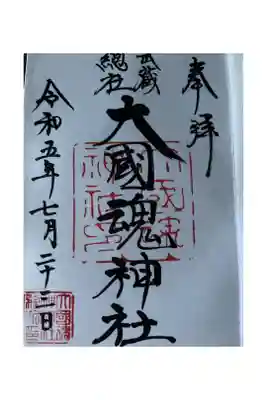 奉拝
武蔵
總社
大國魂神社
令和五年七月二十二日